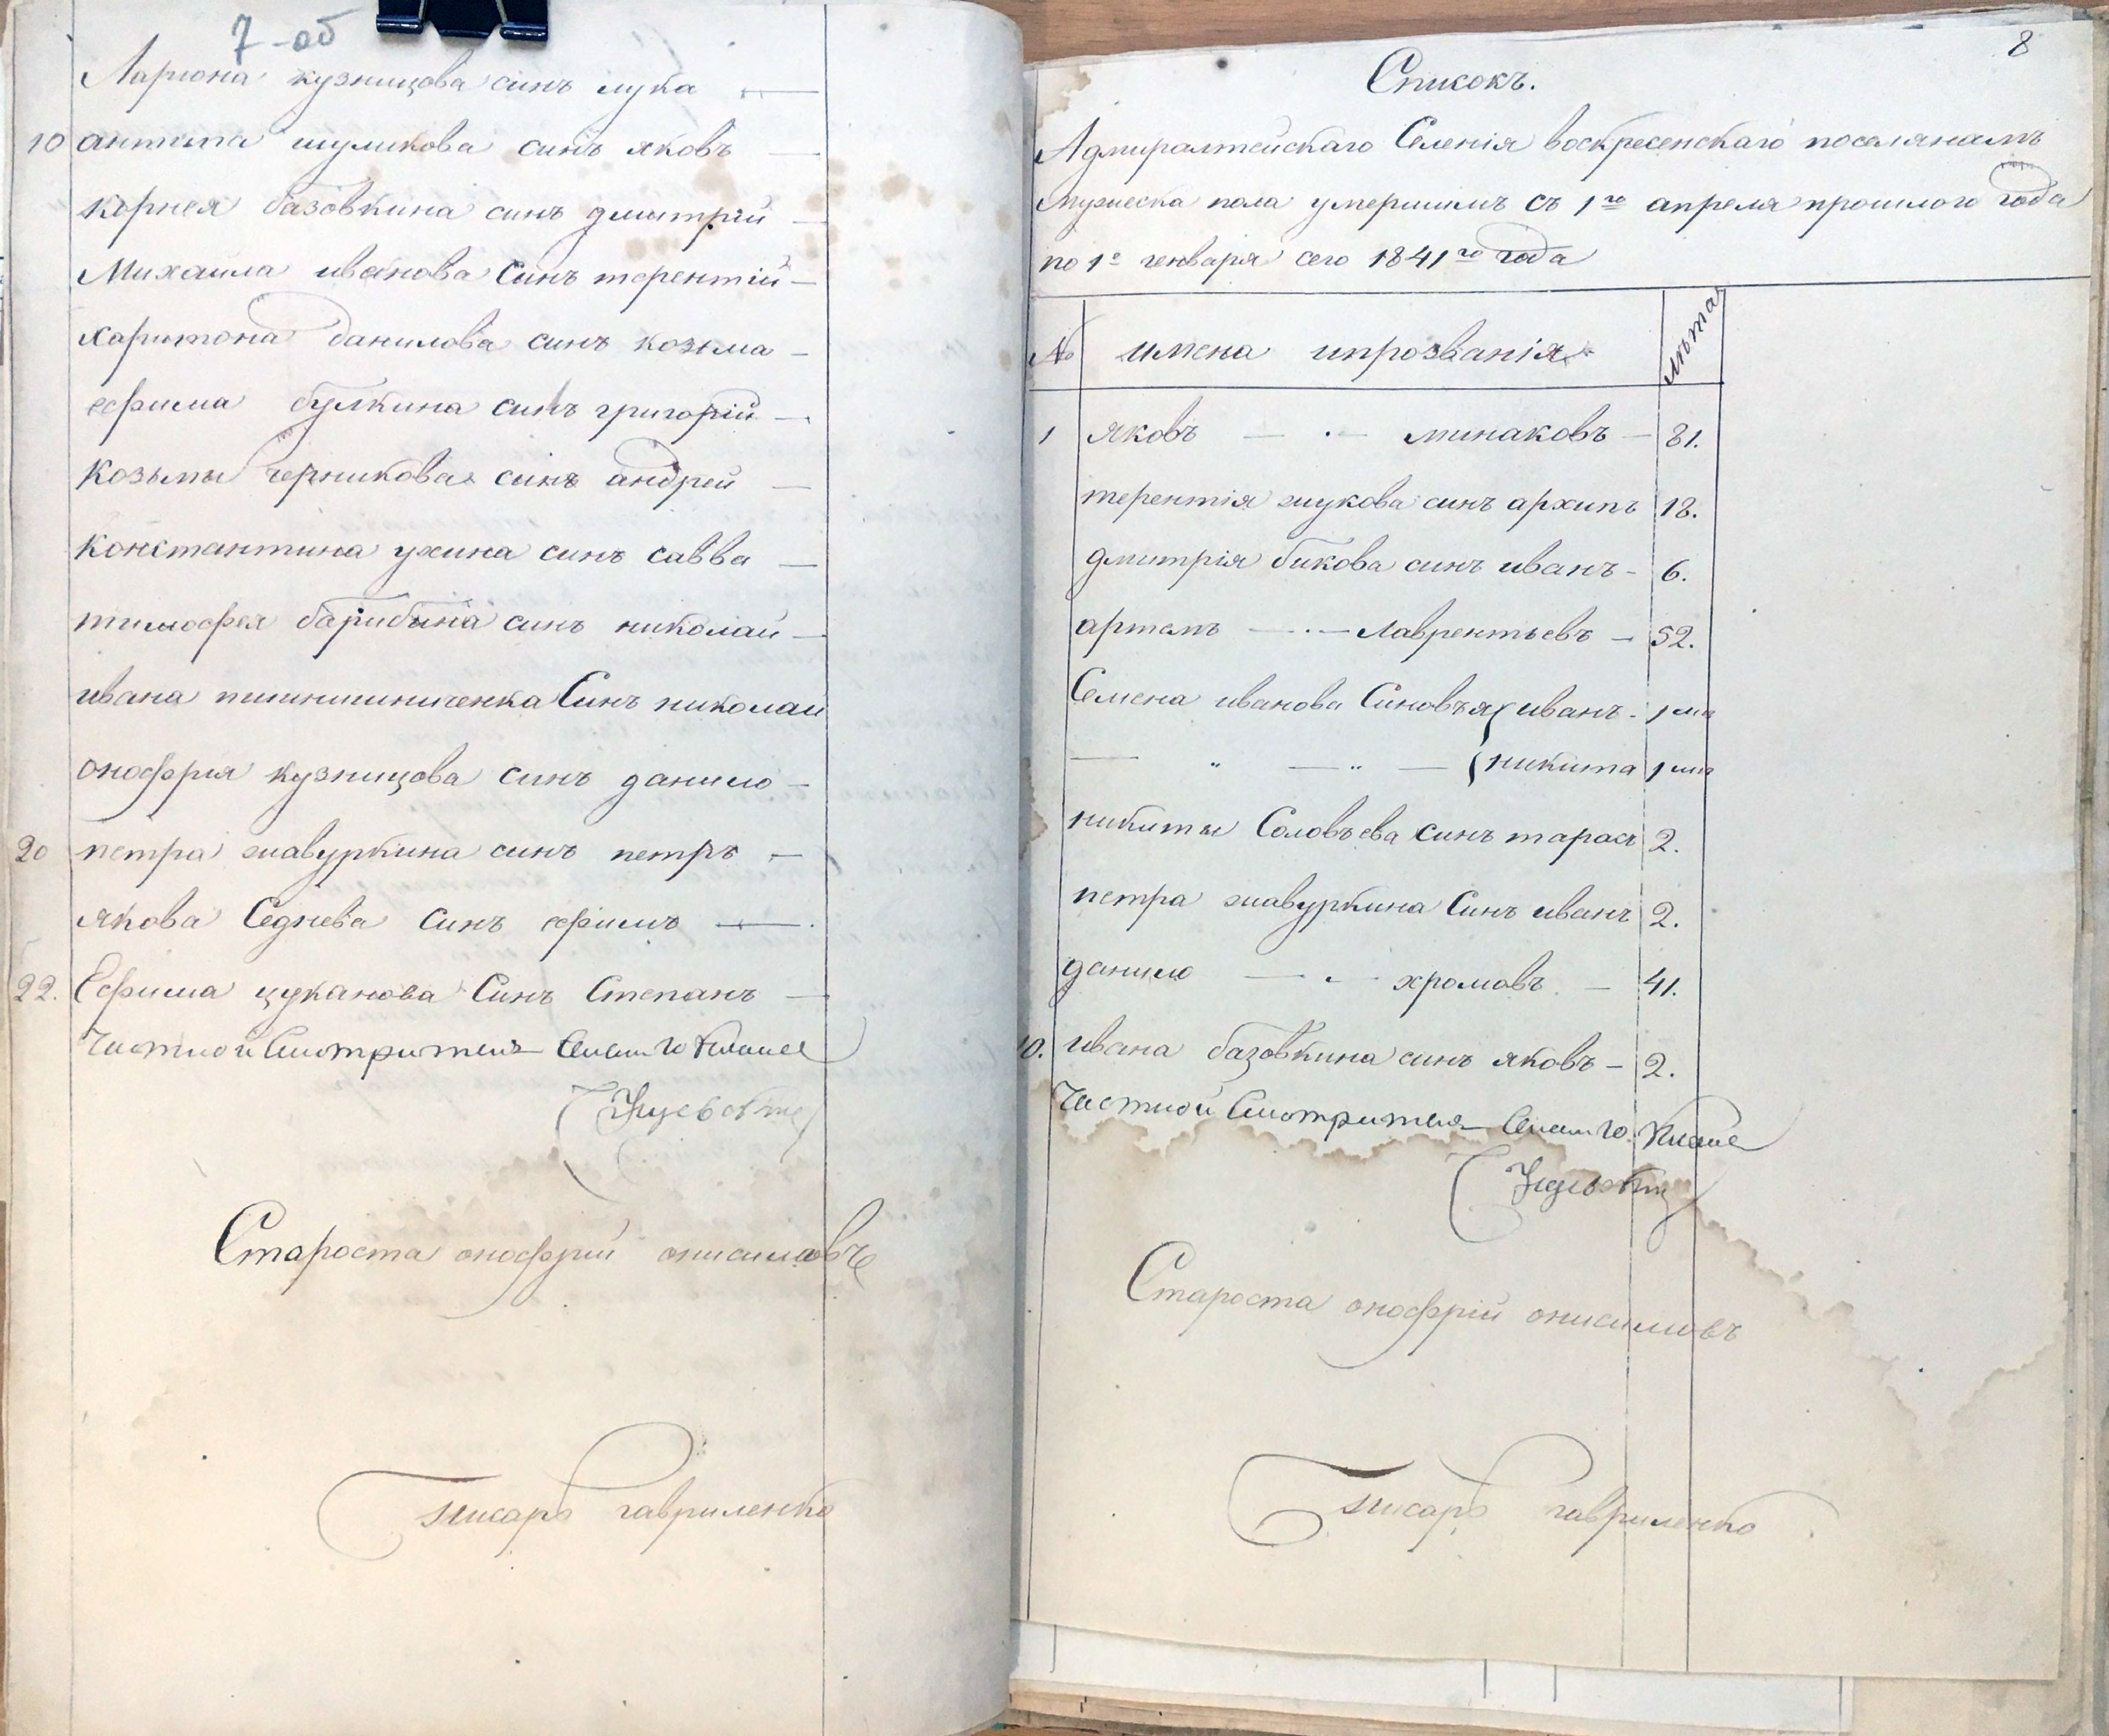 7-об
Лариона кузницова синъ лука
10 антипа шуликова синъ яковъ
корнея базовкина синъ дмитрій
Михаила иванова Синъ терентій
харитона данилова синъ козьма
ефима булкина синъ григорій
козьмы черникова синъ андрей
константина ухина синъ савва
тимофея барибина синъ николай
ивана Синъ николай
онофрія кузницова синъ данило
20 петра шавуркина синъ петръ
якова Седнева Синъ ефимъ
22. Ефима цуканова Синъ Степанъ
Частной Смотритель
Староста онофрій онисимовъ
писарь гавриленко
8
Списокъ.
Адмиралтейскаго Селенія воскресенскаго поселянамъ
мужеска пола умершимъ съ 1го апреля прошлого года
по 1е генваря сего 1841го года
№ имена ипрозванія лѣта
1 яковъ минаковъ 81.
терентія жукова синъ архипъ 18.
дмитрія бикова синъ иванъ 6.
артемъ Лаврентьевъ 52.
Семена иванова Синовья иванъ 1
" " никита 1
никиты Соловьева синъ тарасъ 2.
петра шавуркина Синъ иванъ 2.
данило хромовъ 41.
10. ивана базовкина синъ яковъ 2.
Частной Смотритель
Староста онофрій онисимовъ
писарь гавриленко